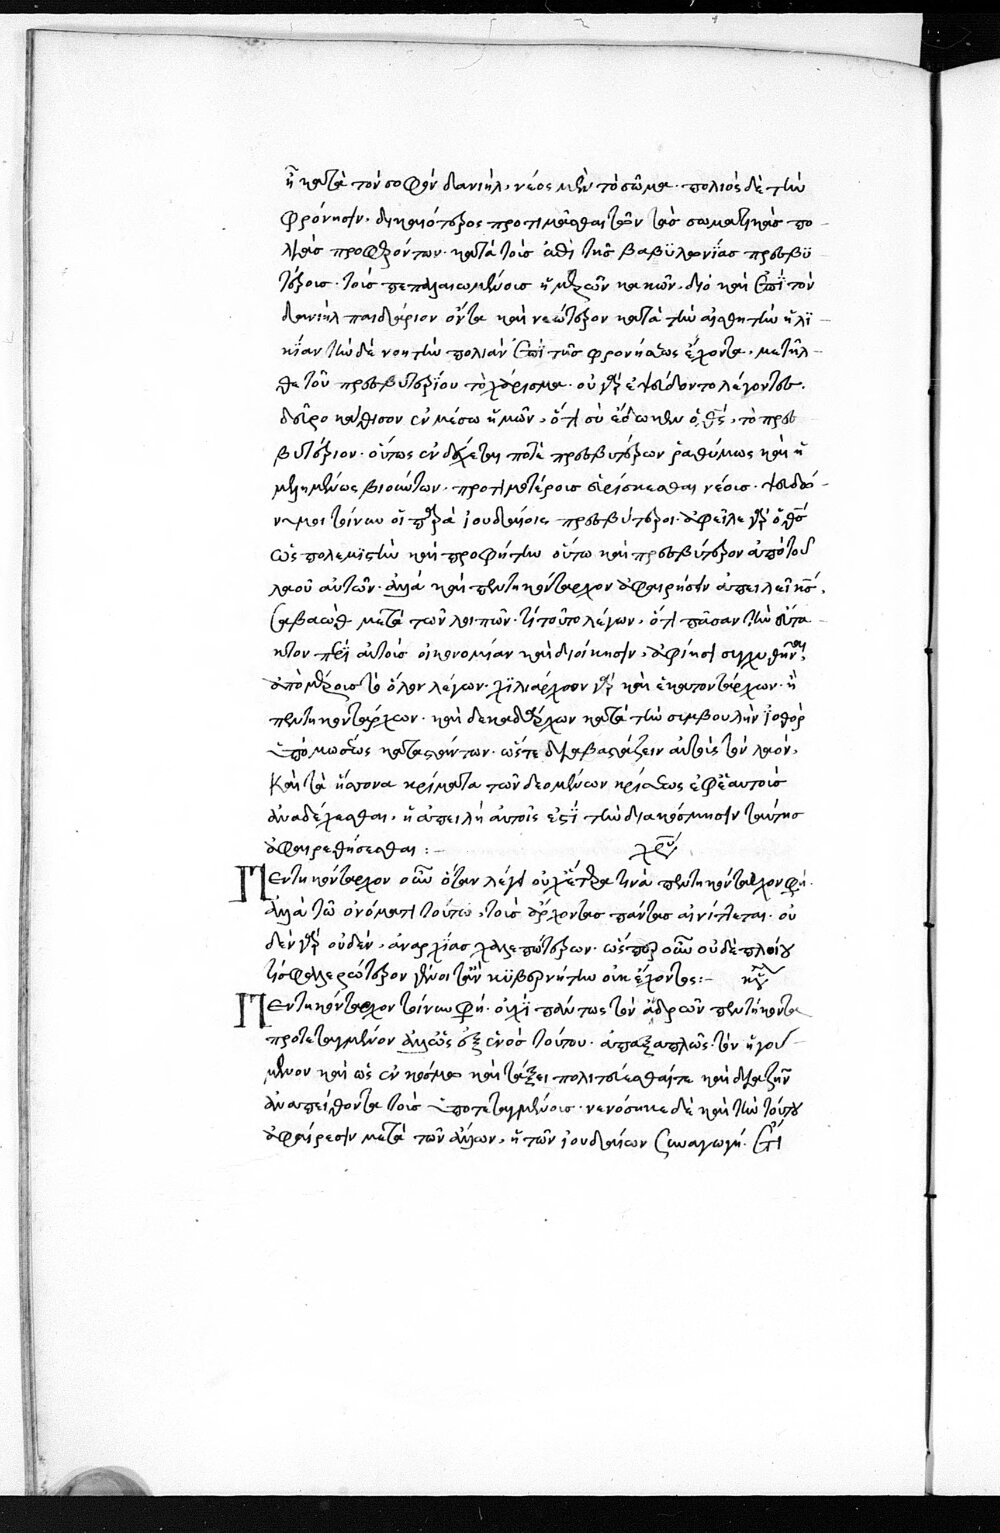 ἢ κατὰ τὸν σοφὸν δανιήλ, νέος μὲν τὸ σῶμα · πολιὸς δὲ τὴν
φρόνησιν, δικαιότερος προτιμᾶσθαι τῶν τὰς σωματικὰς πο
λιὰς προφερόντων · κατὰ τοὺς ἀπὸ τῆς βαβυλωνίας πρεσβυ
τέροις · τοῖς πεπαλαιωμένοις ἡμερῶν κακῶν, διὸ καὶ ἐπὶ τὸν
δανιὴλ παιδάριον ὄντα καὶ νεώτερον κατὰ τὴν αἰσθητὴν ἡλι
κίαν τὴν δὲ νοητὴν πολιὰν ἐπὶ τῆς φρονήσεως ἔχοντα, μετῆλ
θε τοῦ πρεσβυτερίου τὸ χάρισμα · οὐ γὰρ ἐψεύδοντο λέγοντες ·
δεῦρο κάθισον ἐν μέσω ἡμῶν, ὅτι σὺ ἔδωκεν ὁ θς, τὸ πρεσ
βυτέριον · οὕτως ἐνδέχεται ποτὲ πρεσβυτέρων ῥαθύμως καὶ ἠ
μελημένως βιούντων · προτιμοτέροις εὑρίσκεσθαι νέοις ·
οἱ παρὰ ἰουδαίοις πρεσβύτεροι · ἀφεῖλε γὰρ ὁ θς
ὡς πολεμιστὴν καὶ προφήτην οὕτω καὶ πρεσβύτερον ἀπὸ τοῦ
λαοῦ αὐτῶν · ἀλλὰ καὶ πεντηκόνταρχον ἀφαιρήσειν ἀπειλεῖ κς
σαβαὼθ μετὰ τῶν λοιπῶν · τί τοῦτο λέγων, ὅτι πᾶσαν τὴν εὔτα
κτον περὶ αὐτοὺς οἰκονομίαν καὶ διοίκησιν, ἀφίησι συγχυθῆναι,
ἀπὸ μέρους τὸ ὅλον λέγων · χιλιάρχων γὰρ καὶ ἑκατοντάρχων · ἢ
πεντηκοντάρχων · καὶ δεκαδάρχων κατὰ τὴν συμβουλὴν ἰοθὸρ
ὑπὸ μωσέως καταστάντων · ὥστε διαβαστάζειν αὐτοὺς τὸν λαόν,
καὶ τὰ ἥττονα κρίματα τῶν δεομένων κρίσεως ἐφ' ἑαυτοὺς
ἀναδέχεσθαι, ἡ ἀπειλὴ αὐτοῖς ἐστὶ τὴν διακόσμησιν ταύτης
ἀφαιρεθήσεσθαι :–
Πεντηκόνταρχον οὖν ὅταν λέγη οὐχ ἕτερα τινὰ πεντηκόνταρχον φη ·
ἀλλὰ τῶ ὀνόματι τούτω, τοὺς ἄρχοντας πάντας αἰνίττεται · οὐ
δὲν γὰρ οὐδέν, ἀναρχίας χαλεπώτερον · ὥσπερ οὖν οὐδὲ πλοίου
τι σφαλερώτερον γένοιτ' ἂν κυβερνήτην οὐκ ἔχοντος :–
Πεντηκόνταρχον τοίνυν φη · οὐχὶ πάντως τὸν ἀνδρῶν πεντήκοντα
προτεταγμένον ἀλλ' ὡς ἐξ ἑνὸς τούτου · ἅπαξαπλῶς · τὸν ἡγού
μενον καὶ ὡς ἐν κόσμω καὶ τάξει πολιτεύεσθαί τε καὶ διαζῆν
ἀναπείθοντα τοὺς ὑποτεταγμένους · νενόσηκε δὲ καὶ τὴν τούτου
ἀφαίρεσιν μετὰ τῶν ἄλλων, ἡ τῶν ἰουδαίων συναγωγή ·